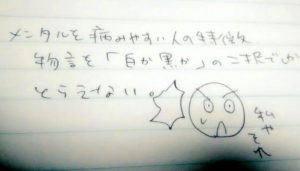 メンタルを病みやすい人の特徴
物言を「白か黒か」の二択でしか
とらえない。
私や
それ